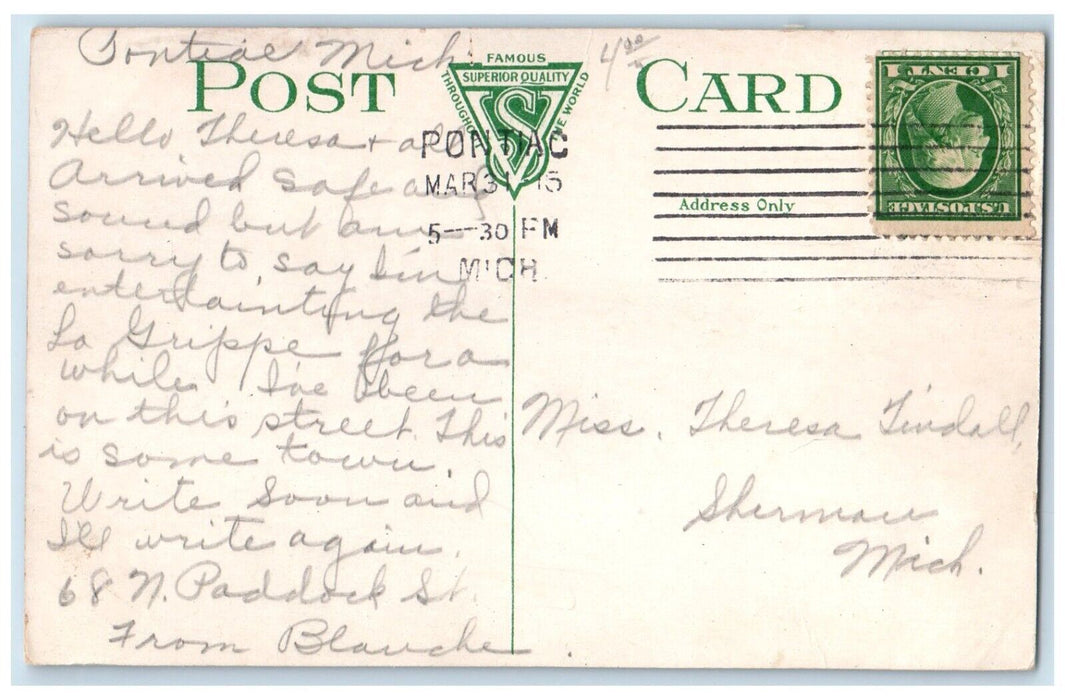 Pontiac Mich.
4.00
POST CARD
FAMOUS
SUPERIOR QUALITY
THROUGHOUT THE WORLD
VS
Hello Theresa + all
Arrived safe and
sound but am
sorry to say I'm
entertainting the
La Grippe for a
while. I've been
on this street. This
is some town.
Write Soon and
I'll write again.
68 N. Paddock St.
From Blanche.
PONTIAC
MAR 31 15
5--30 PM
MICH
Address Only
1 CENT 1
U.S. POSTAGE
Miss. Theresa Tindall,
Sherman
Mich.